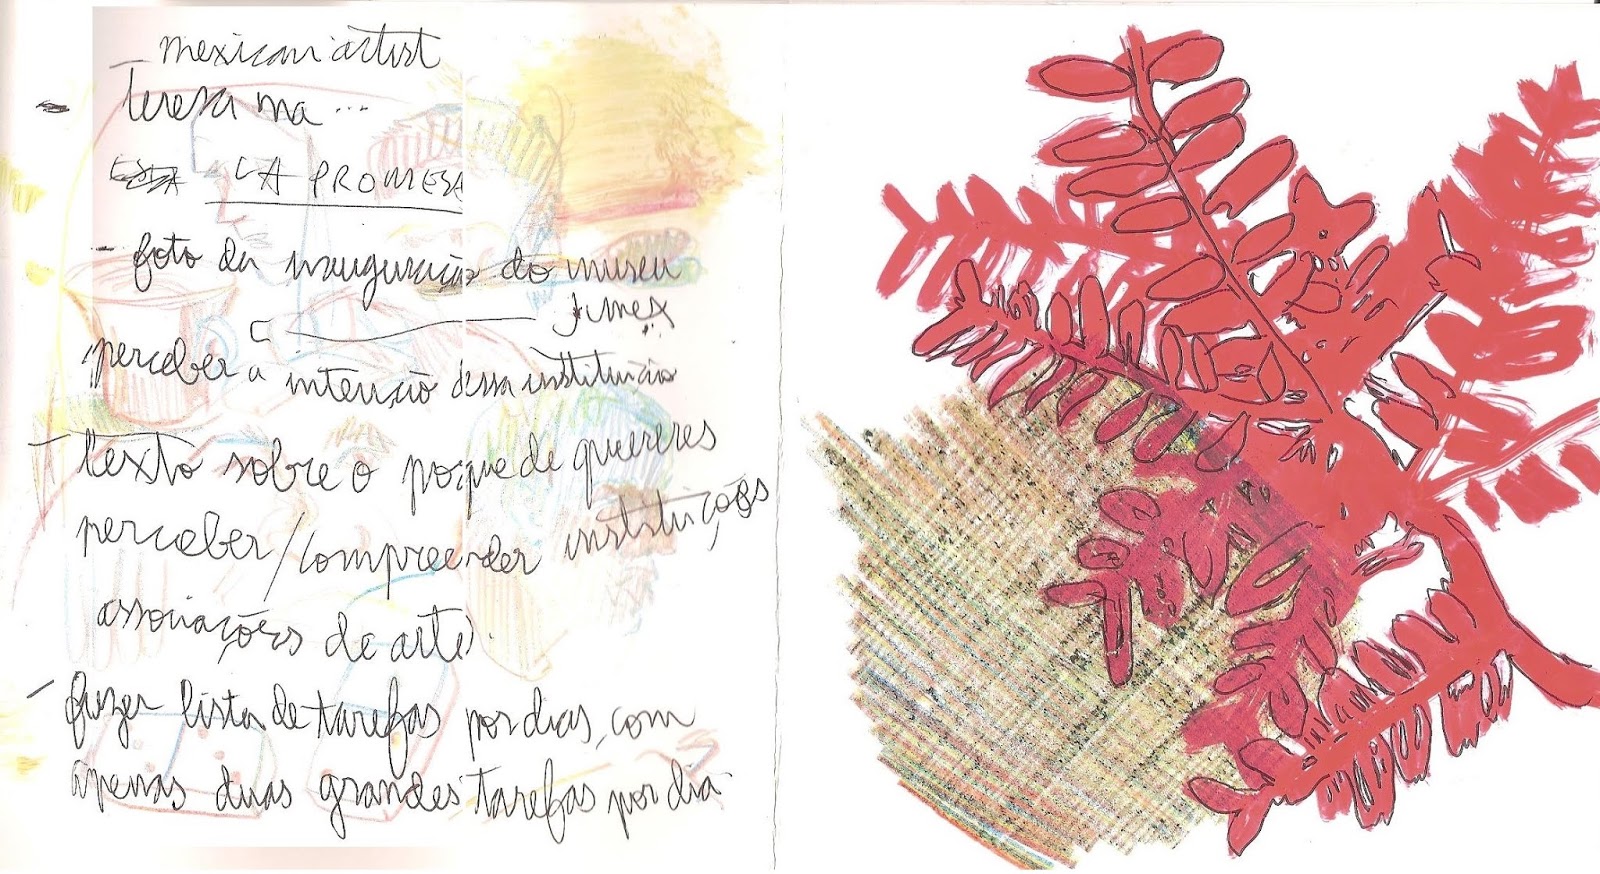 mexican artist
teresa ma...
LA PROMESA
- foto da inauguração do museu
Jumex
perceber a intenção dessa instituição
- texto sobre o porque de quereres
perceber/compreender instituições
associações de arte.
- fazer lista de tarefas por dias, com
apenas duas grandes tarefas por dia.